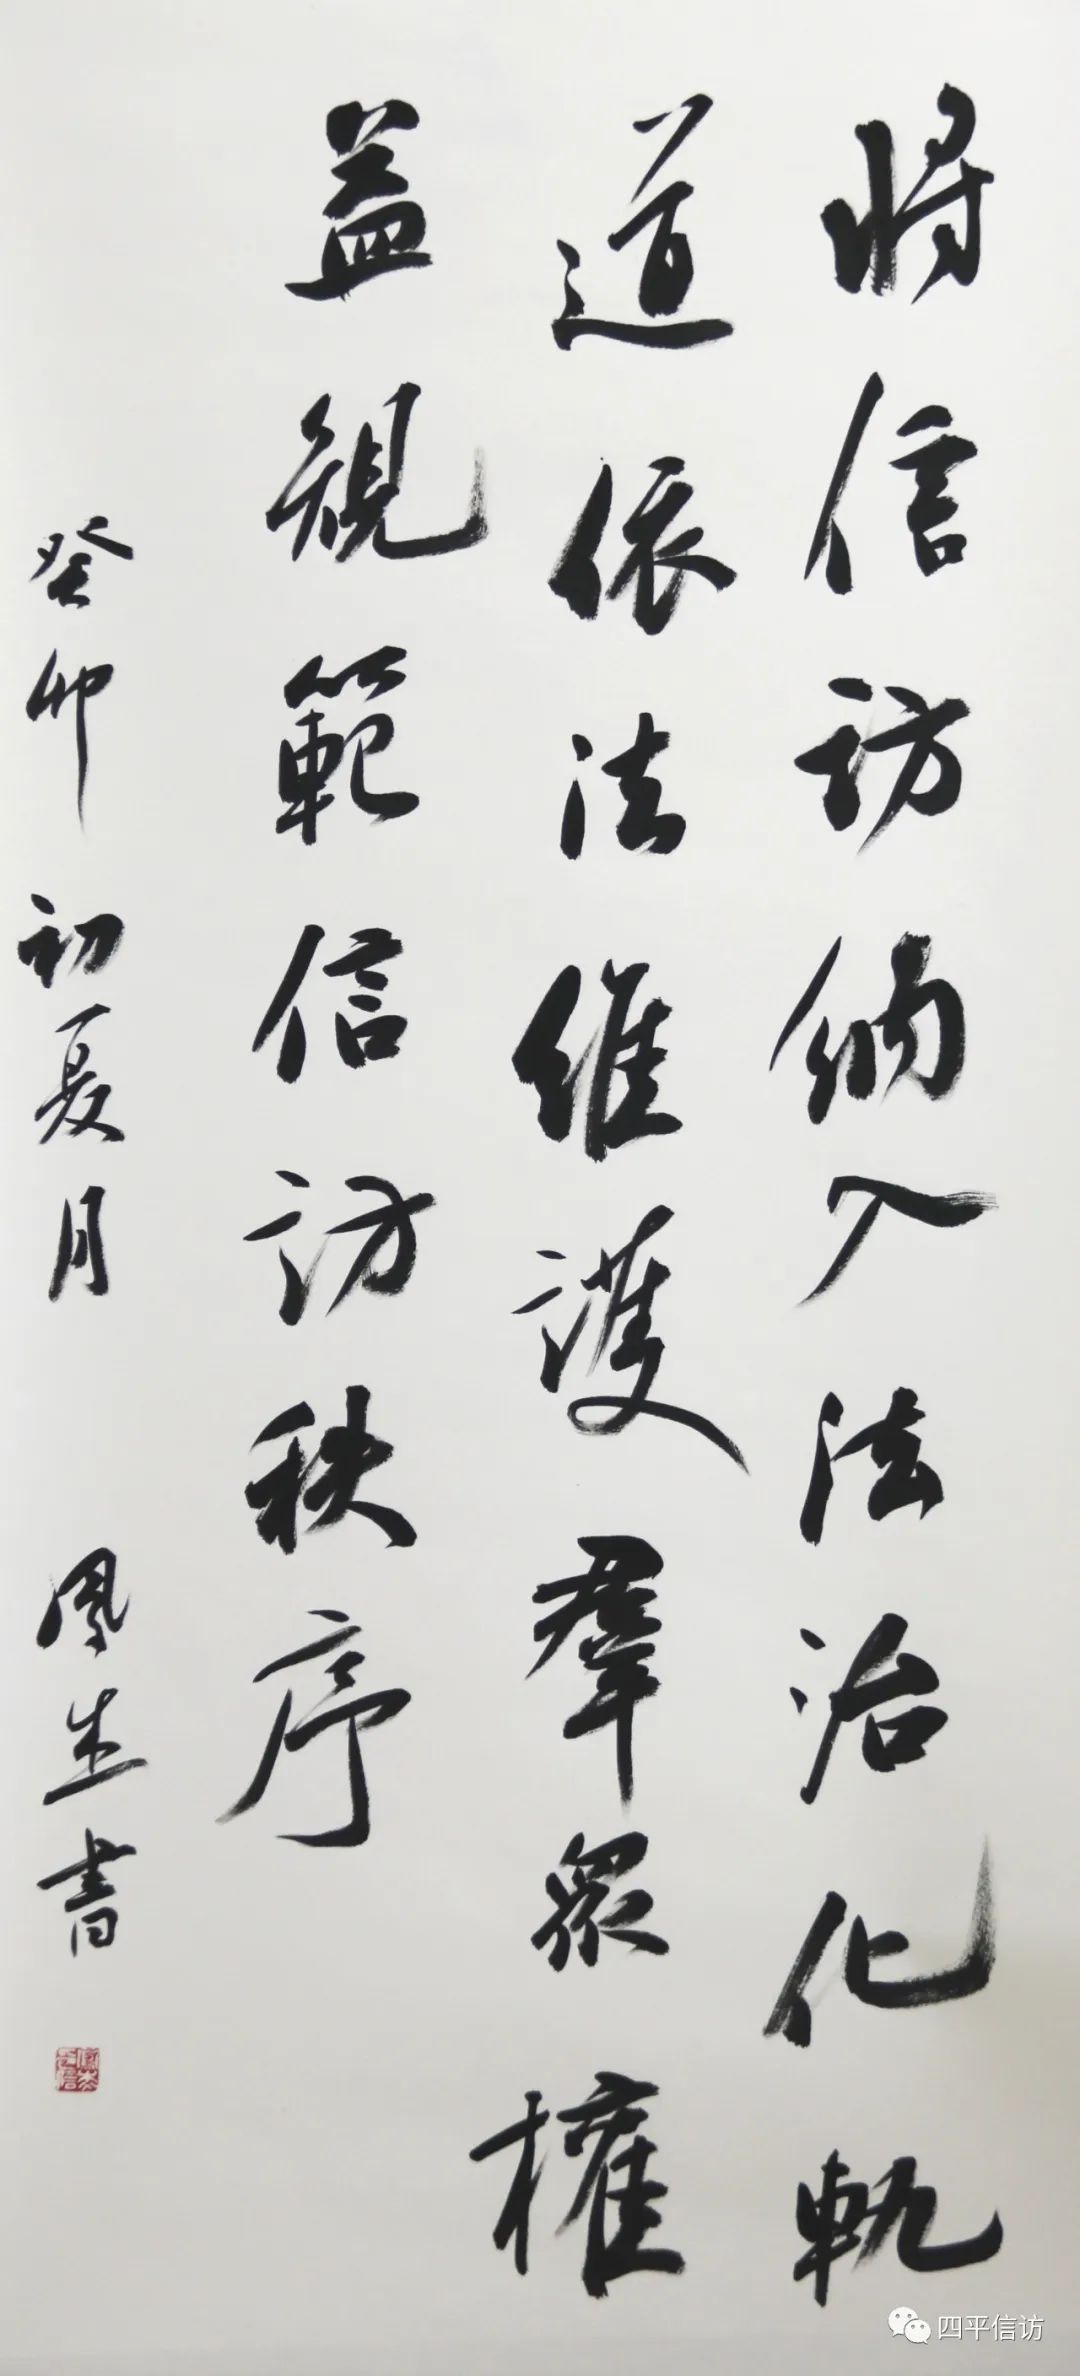 将信訪納入法治化軌
道依法維護羣眾權
益規範信訪秩序
癸卯初夏月 鳳生書
四平信访